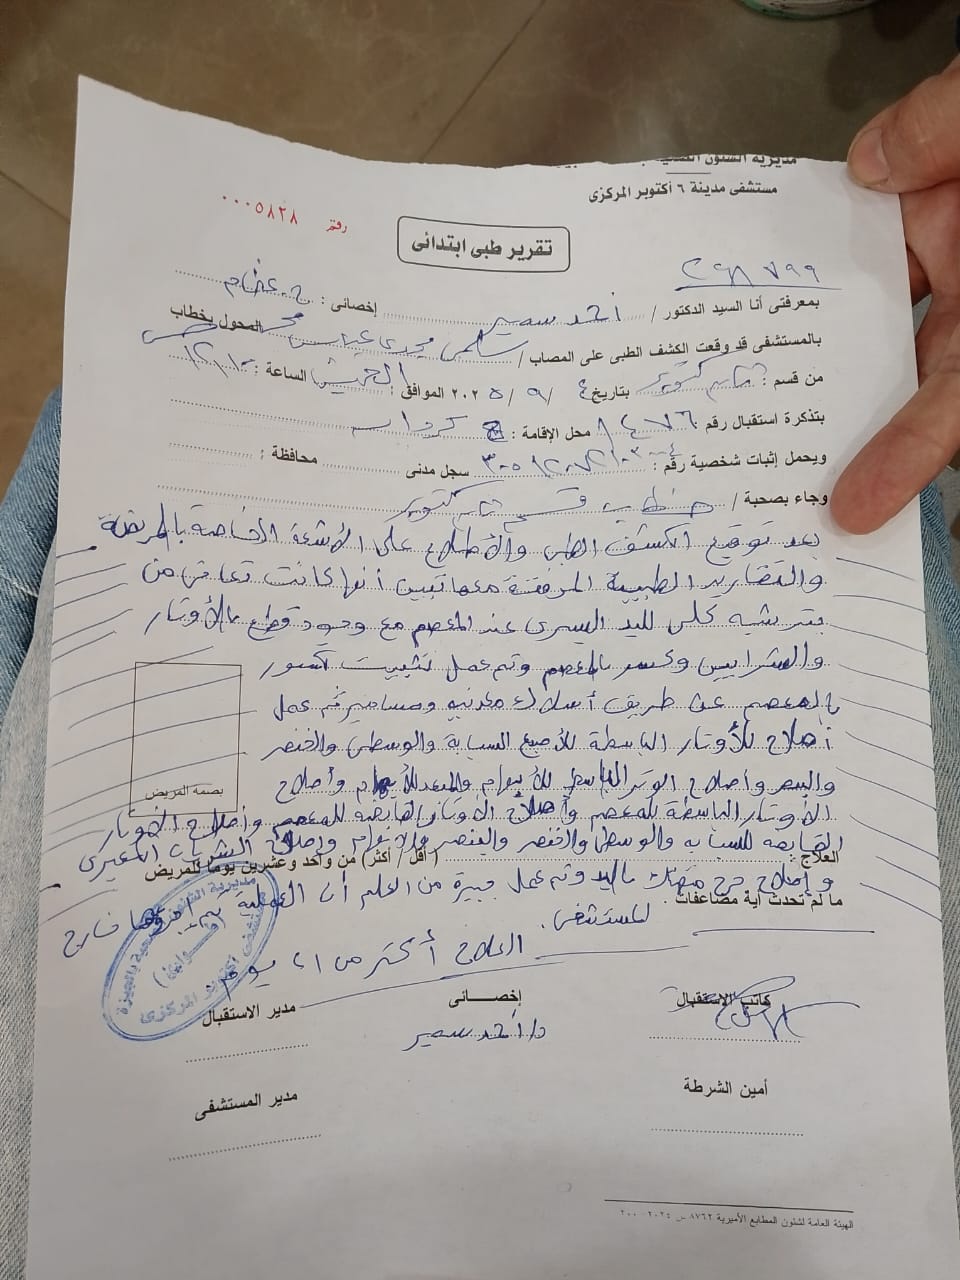 مديرية الشئون الصحية
مستشفى مدينة ٦ أكتوبر المركزى
رقم ٠٠٠٥٨٢٨
تقرير طبى ابتدائى
بمعرفتى أنا السيد الدكتور / أحمد سمير إخصائى : ج. عظام
بالمستشفى قد وقعت الكشف الطبى على المصاب / سلمى مجدى المحول بخطاب
من قسم : أكتوبر بتاريخ ٤ / ٩ / ٢٠٢٥ الموافق : الخميس الساعة :
بتذكرة استقبال رقم ٨٤٧٦ محل الإقامة :
ويحمل إثبات شخصية رقم : سجل مدنى محافظة :
وجاء بصحبة / خطاب قسم أكتوبر
بعد توقيع الكشف الطبى والإطلاع على الأشعة الخاصة بالمريضة
والتقارير الطبية المرفقة معها تبين أنها كانت تعانى من
بتر شبه كلى لليد اليسرى عند المعصم مع وجود قطع بالأوتار
والشرايين وكسر بالمعصم وتم عمل تثبيت كسور
بالمعصم عن طريق أسلاك معدنية ومسامير تم عمل
أصلاح للأوتار الباسطة للأصبع السبابة والوسطى والخنصر
والبنصر وأصلاح الوتر الباسط للأبهام والمبعد للأبهام وأصلاح
الأوتار الباسطة للمعصم وأصلاح الأوتار القابضة للمعصم وأصلاح الأوتار
القابضة للسبابة والوسطى والخنصر والبنصر والإبهام وإصلاح الشريان
العلاج : ( أقل / أكثر ) من واحد وعشرين يوماً للمريض
وإصلاح جرح باليد وتم عمل جبيرة من العلم أن العملية تم خارج
ما لم تحدث أية مضاعفات .
المستشفى .
العلاج أكثر من ٢١ يوم
بصمة المريض
كاتب الإستقبال إخصـــائى مدير الاستقبال
د/ أحمد سمير
أمين الشرطة مدير المستشفى
مديرية الشئون الصحية بالجيزة
مستشفى أكتوبر المركزى
الهيئة العامة لشئون المطابع الأميرية